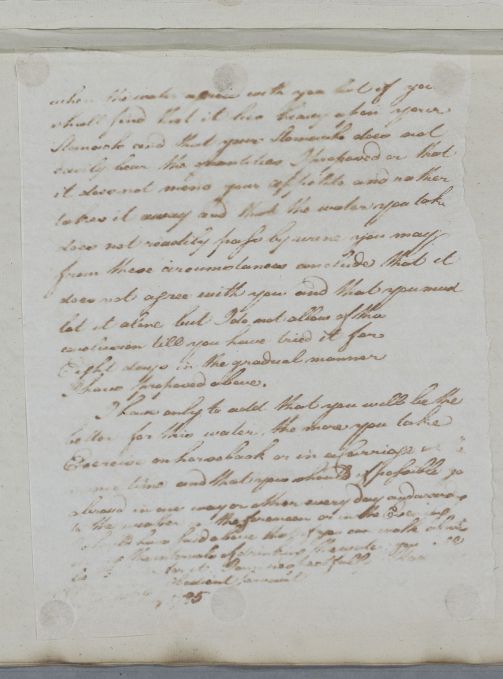 when the water agrees with you but if you
shall find that it lies heavy upon your
Stomach and that your Stomach does not
easily bear the quantities I proposed or that
it does not mend your appetite and rather
takes it away and that the water you take
does not readily pass by urine you may
from these circumstances conclude that it
does not agree with you and that you must
let it alone but I do not allow of this
conclusion till you have tried it for
Eight days in the gradual manner
I have proposed above.
I have only to add that you will be the
better for this water the more you take
Exercise on horseback or in a carriage
time and that you should if possible go
abroad in one way or other every day
to the weather the forenoon or in the
have said above that if you can walk
the intervals of drinking the water
for it. I am respectfully
obedient servant